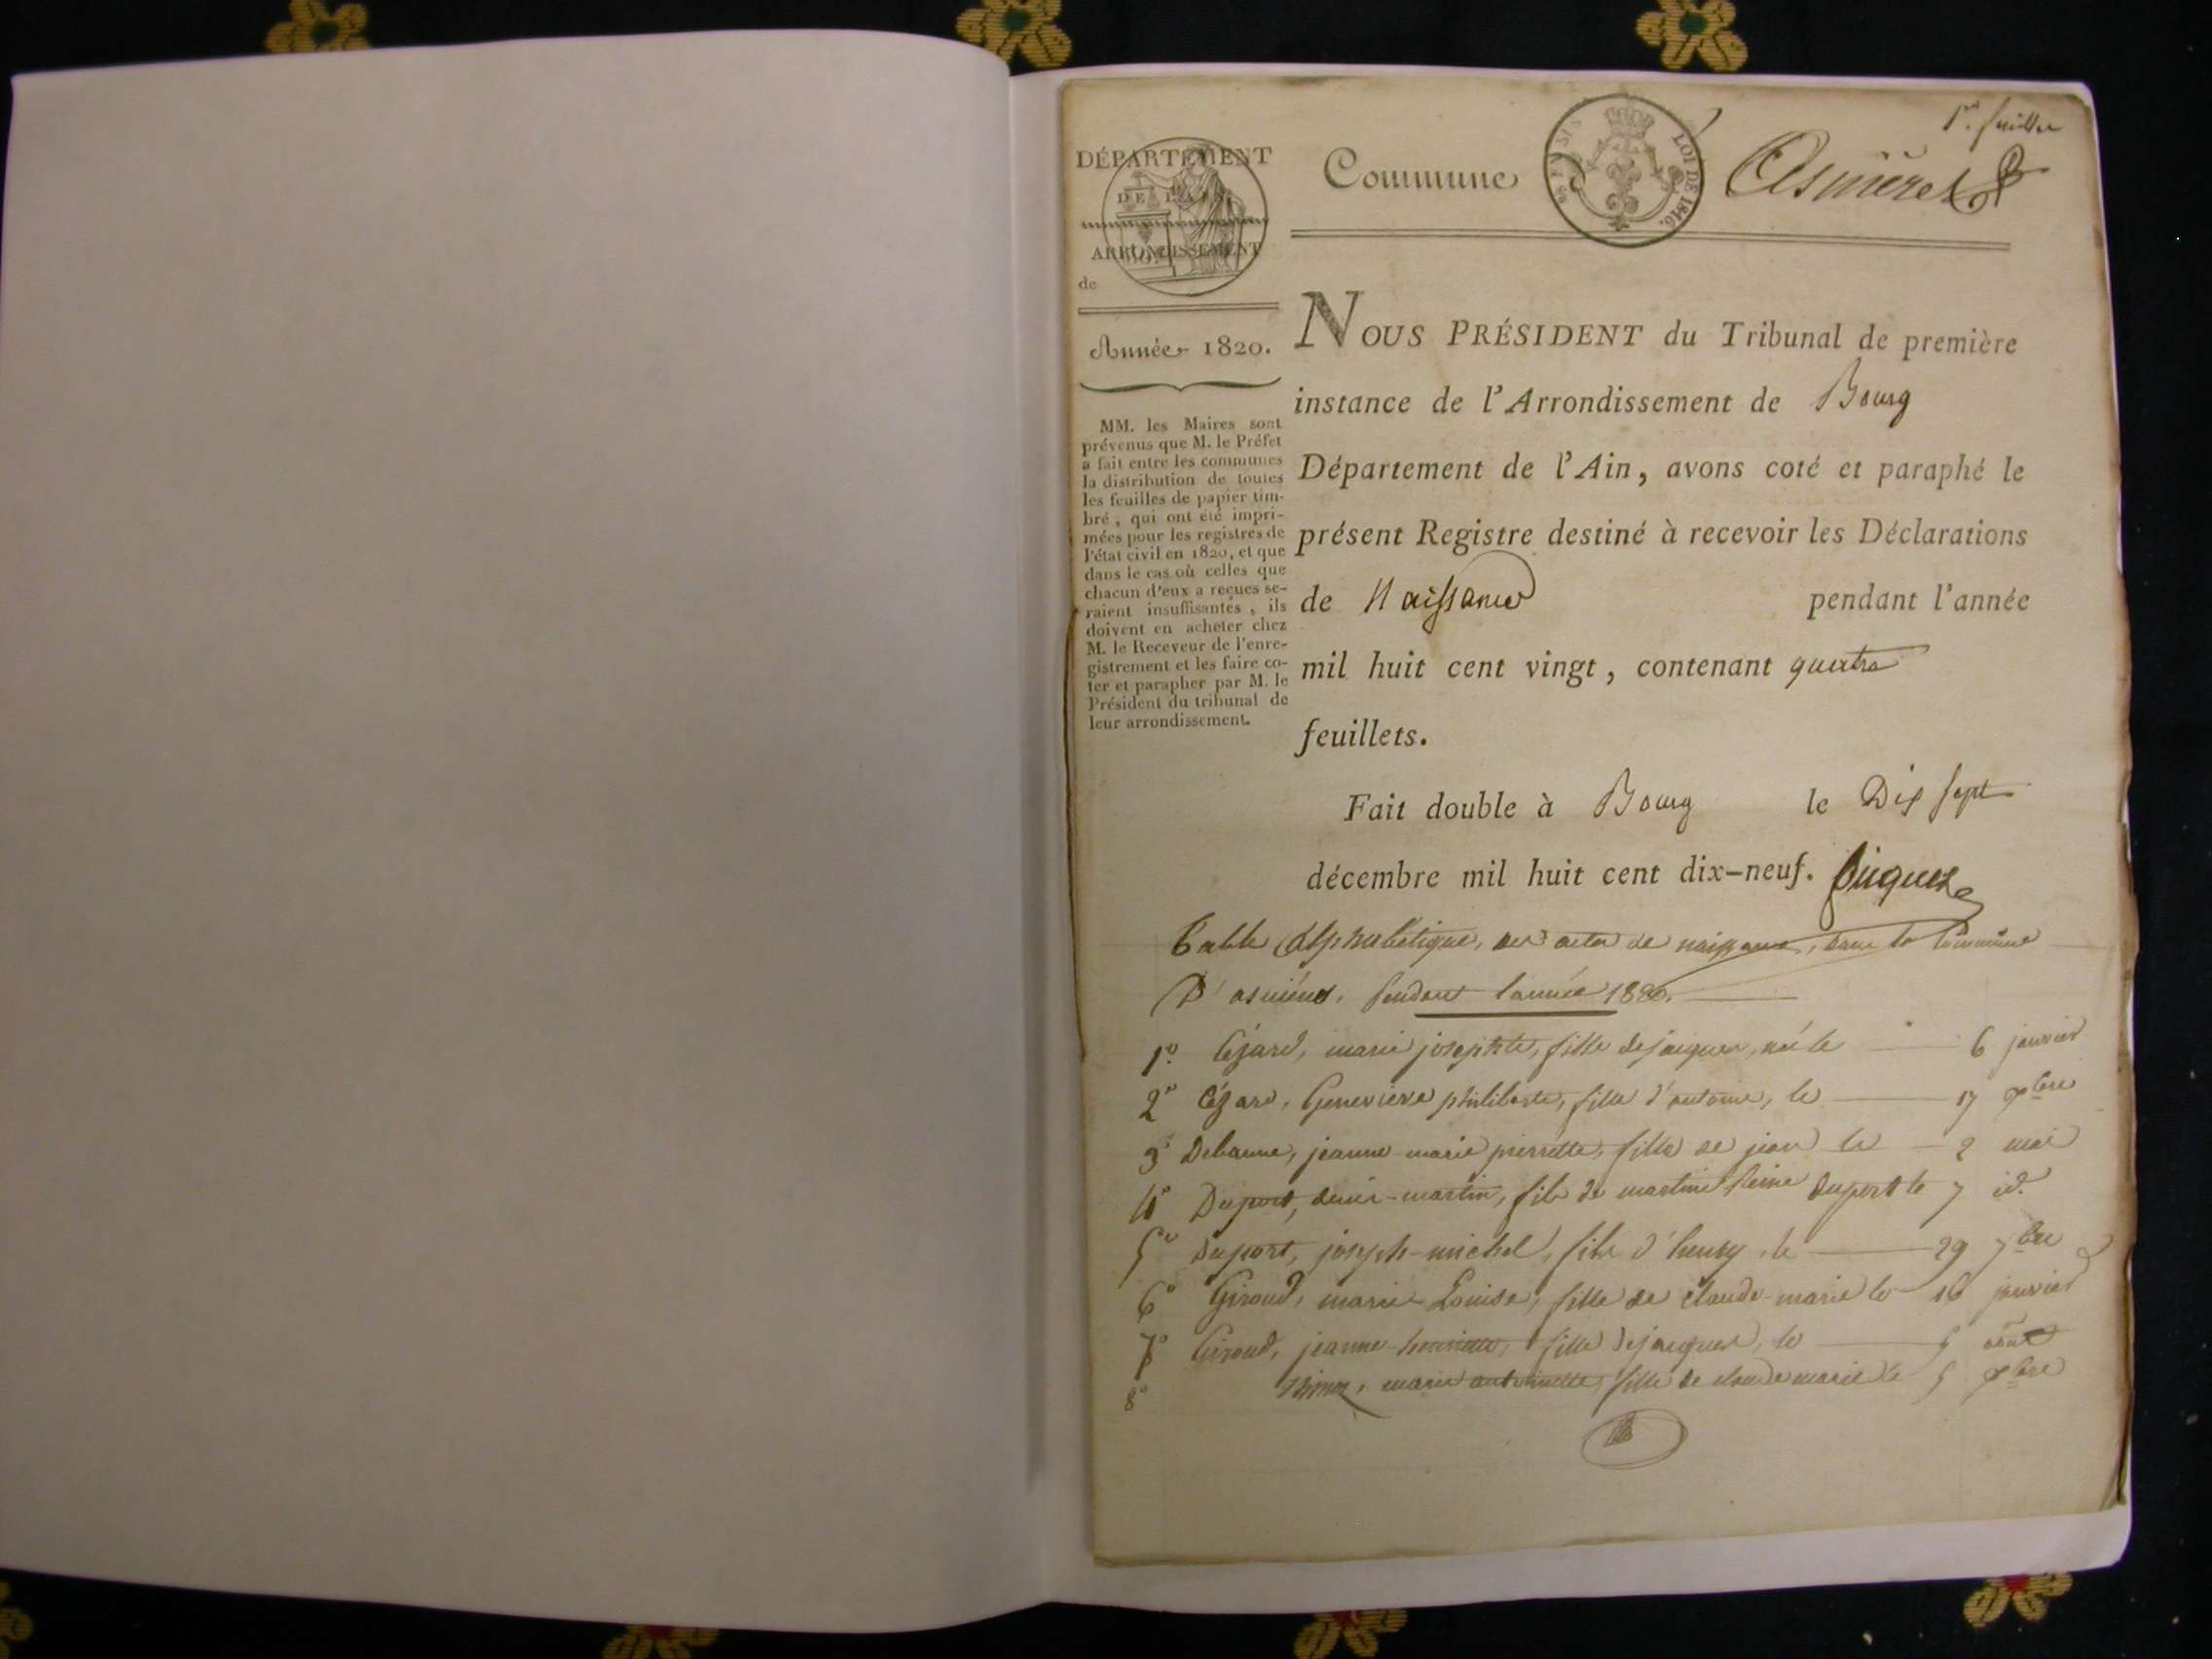 1er. feuillet
DÉPARTEMENT
DE L'AIN.
ARRONDISSEMENT
de
Commune
LOI DE 1816.
Asnieres
Année 1820.
MM. les Maires sont
prévenus que M. le Préfet
a fait entre les communes
la distribution de toutes
les feuilles de papier tim-
bré, qui ont été impri-
mées pour les registres de
l'état civil en 1820, et que
dans le cas où celles que
chacun d'eux a reçues se-
raient insuffisantes, ils
doivent en acheter chez
M. le Receveur de l'enre-
gistrement et les faire co-
ter et parapher par M. le
Président du tribunal de
leur arrondissement.
NOUS PRÉSIDENT du Tribunal de première
instance de l'Arrondissement de Bourg
Département de l'Ain, avons coté et paraphé le
présent Registre destiné à recevoir les Déclarations
de Naissance pendant l'année
mil huit cent vingt, contenant quatre
feuillets.
Fait double à Bourg le Dix sept
décembre mil huit cent dix-neuf.
Table Alphabétique, des actes de naissance, dans la Commune
D'asnières, pendant l'année 1820.
1º. Cézard, marie josephte, fille de jacques, née le 6 janvier
2º Cézard, Genevieve philiberte, fille d'antoine, le 17 xbre
3º Debanne, jeanne-marie pierrette, fille de jean le 2 mai
4º Duport, denis-martin, fils de martine Reine duport le 7 id.
5º Duport, joseph-michel, fils d'henry, le 29 7bre
6º Giroud, marie Louise, fille de claude-marie le 16 janvier
7º Giroud, jeanne-henriette, fille de jacques, le 5 août
8º marie antoinette, fille de claude marie le 5 xbre